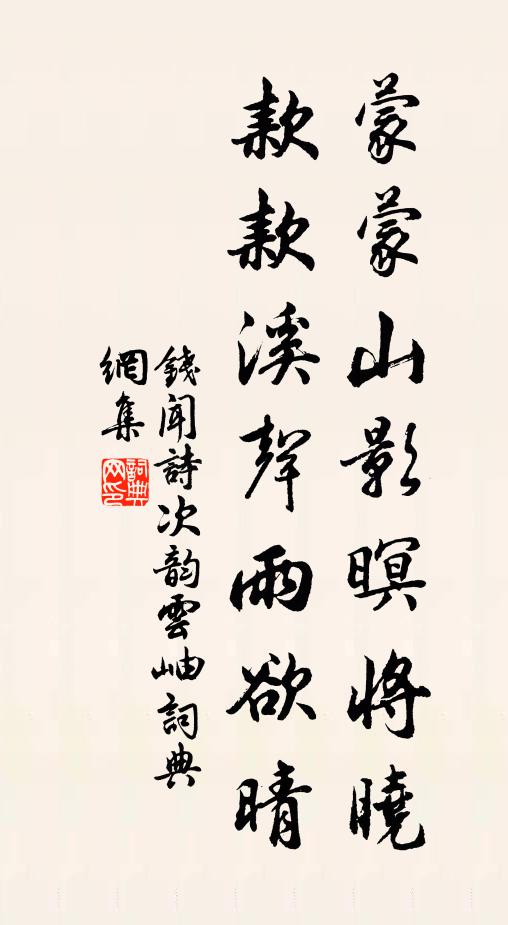 蒙蒙山影暝將曉
款款溪聲雨欲晴
錢聞詩次韵雲岫詞典
網集
詞典
网印